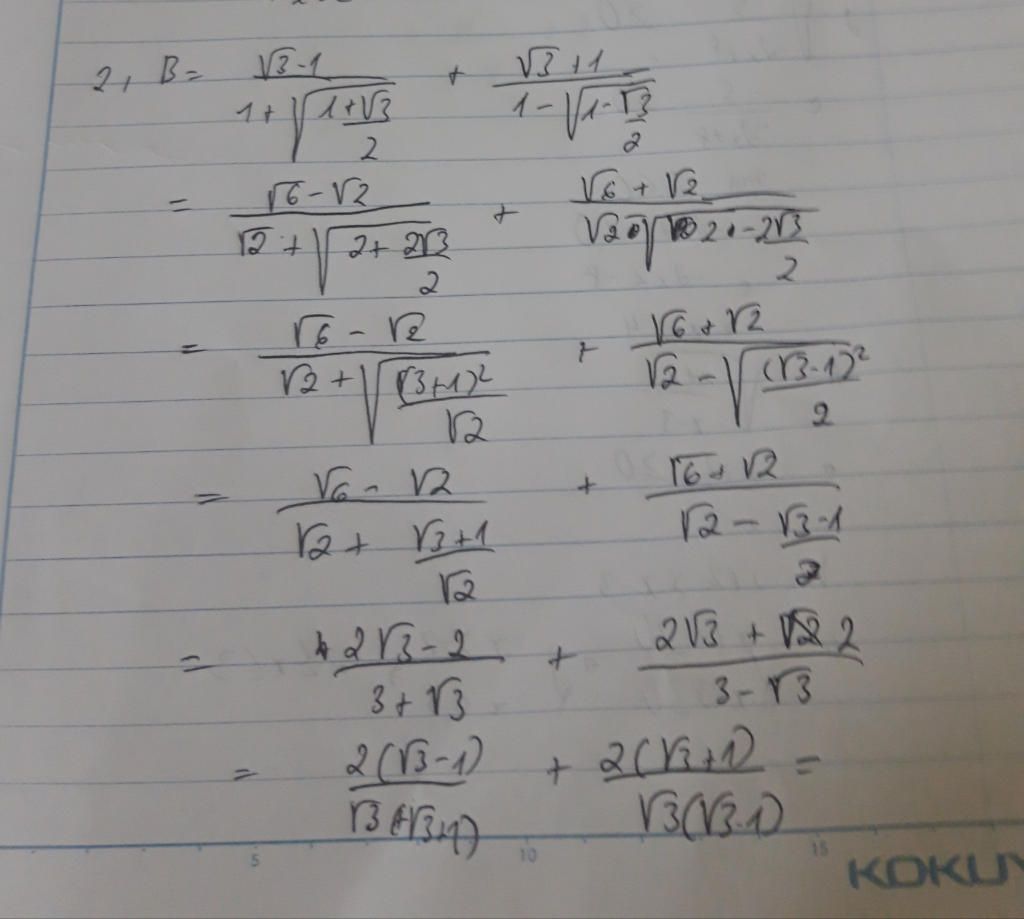 2, B = \frac{\sqrt{3}-1}{1+\sqrt{1+\frac{\sqrt{3}}{2}}} + \frac{\sqrt{3}+1}{1-\sqrt{1-\frac{\sqrt{3}}{2}}}
= \frac{\sqrt{6}-\sqrt{2}}{\sqrt{2}+\sqrt{2+\frac{2\sqrt{3}}{2}}} + \frac{\sqrt{6}+\sqrt{2}}{\sqrt{2}-\sqrt{2-\frac{2\sqrt{3}}{2}}}
= \frac{\sqrt{6}-\sqrt{2}}{\sqrt{2}+\sqrt{\frac{(\sqrt{3}+1)^2}{\sqrt{2}}}} + \frac{\sqrt{6}+\sqrt{2}}{\sqrt{2}-\sqrt{\frac{(\sqrt{3}-1)^2}{2}}}
= \frac{\sqrt{6}-\sqrt{2}}{\sqrt{2}+\frac{\sqrt{3}+1}{\sqrt{2}}} + \frac{\sqrt{6}+\sqrt{2}}{\sqrt{2}-\frac{\sqrt{3}-1}{2}}
= \frac{2\sqrt{3}-2}{3+\sqrt{3}} + \frac{2\sqrt{3}+2}{3-\sqrt{3}}
= \frac{2(\sqrt{3}-1)}{\sqrt{3}(\sqrt{3}+1)} + \frac{2(\sqrt{3}+1)}{\sqrt{3}(\sqrt{3}-1)} =
5 10 15
KOKUY